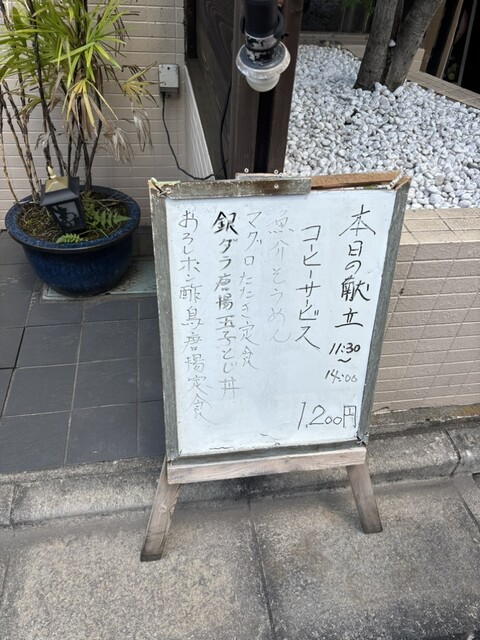 本日の献立
11:30
〜
14:00
コーヒーサービス
1,200円
魚介そうめん
マグロたたき定食
銀ダラ唐揚玉子とじ丼
おろしポン酢鳥唐揚定食